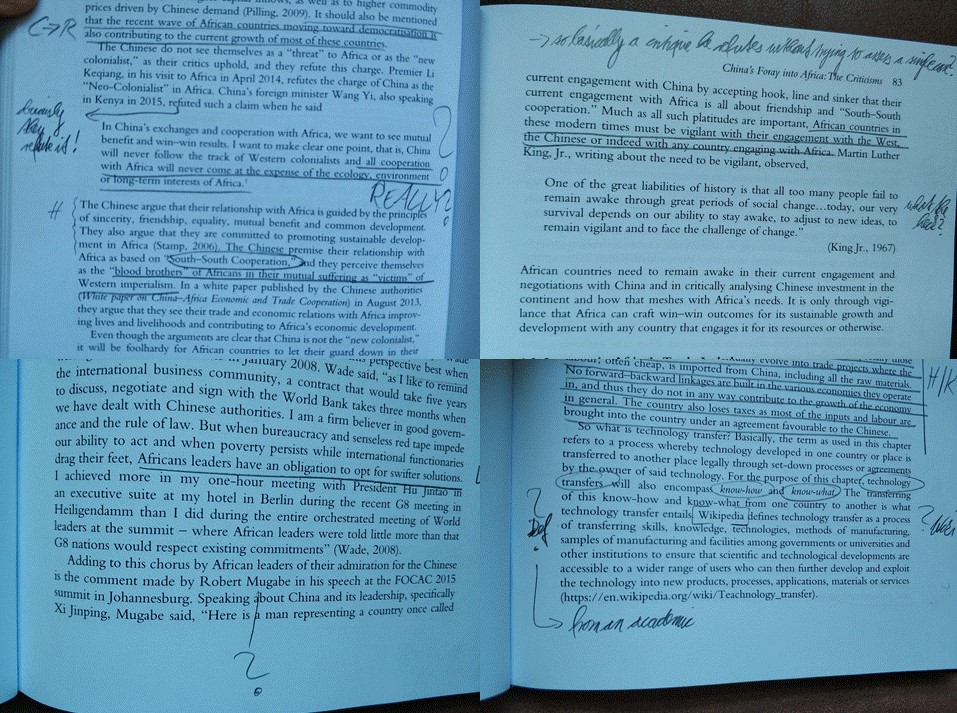 prices driven by Chinese demand (Pilling, 2009). It should also be mentioned
that the recent wave of African countries moving toward democratisation is
also contributing to the current growth of most of these countries.
The Chinese do not see themselves as a “threat” to Africa or as the “new
colonialist,” as their critics uphold, and they refute this charge. Premier Li
Keqiang, in his visit to Africa in April 2014, refutes the charge of China as the
“Neo-Colonialist” in Africa. China's foreign minister Wang Yi, also speaking
in Kenya in 2015, refuted such a claim when he said
In China's exchanges and cooperation with Africa, we want to see mutual
benefit and win–win results. I want to make clear one point, that is, China
will never follow the track of Western colonialists and all cooperation
with Africa will never come at the expense of the ecology, environment
or long-term interests of Africa.¹
The Chinese argue that their relationship with Africa is guided by the principles
of sincerity, friendship, equality, mutual benefit and common development.
They also argue that they are committed to promoting sustainable develop-
ment in Africa (Stamp, 2006). The Chinese premise their relationship with
Africa as based on “South–South Cooperation,” and they perceive themselves
as the “blood brothers” of Africans in their mutual suffering as “victims” of
Western imperialism. In a white paper published by the Chinese authorities
(White paper on China–Africa Economic and Trade Cooperation) in August 2013,
they argue that they see their trade and economic relations with Africa improv-
ing lives and livelihoods and contributing to Africa's economic development.
Even though the arguments are clear that China is not the “new colonialist,”
it will be foolhardy for African countries to let their guard down in their
C→R
they
it!
REALLY?
H
→ so basically a critique
China's Foray into Africa: The Criticisms 83
current engagement with China by accepting hook, line and sinker that their
current engagement with Africa is all about friendship and “South–South
cooperation.” Much as all such platitudes are important, African countries in
these modern times must be vigilant with their engagement with the West,
the Chinese or indeed with any country engaging with Africa. Martin Luther
King, Jr., writing about the need to be vigilant, observed,
One of the great liabilities of history is that all too many people fail to
remain awake through great periods of social change...today, our very
survival depends on our ability to stay awake, to adjust to new ideas, to
remain vigilant and to face the challenge of change.”
(King Jr., 1967)
African countries need to remain awake in their current engagement and
negotiations with China and in critically analysing Chinese investment in the
continent and how that meshes with Africa's needs. It is only through vigi-
lance that Africa can craft win–win outcomes for its sustainable growth and
development with any country that engages it for its resources or otherwise.
January 2008. Wade said, “as I like to remind
the international business community, a contract that would take five years
to discuss, negotiate and sign with the World Bank takes three months when
we have dealt with Chinese authorities. I am a firm believer in good govern-
ance and the rule of law. But when bureaucracy and senseless red tape impede
our ability to act and when poverty persists while international functionaries
drag their feet, Africans leaders have an obligation to opt for swifter solutions.
I achieved more in my one-hour meeting with President Hu Jintao in
an executive suite at my hotel in Berlin during the recent G8 meeting in
Heiligendamm than I did during the entire orchestrated meeting of World
leaders at the summit – where African leaders were told little more than that
G8 nations would respect existing commitments” (Wade, 2008).
Adding to this chorus by African leaders of their admiration for the Chinese
is the comment made by Robert Mugabe in his speech at the FOCAC 2015
summit in Johannesburg. Speaking about China and its leadership, specifically
Xi Jinping, Mugabe said, “Here is a man representing a country once called
?
often cheap, is imported from China, including all the raw materials.
No forward–backward linkages are built in the various economies they operate
in, and thus they do not in any way contribute to the growth of the economy
in general. The country also loses taxes as most of the inputs and labour are
brought into the country under an agreement favourable to the Chinese.
So what is technology transfer? Basically, the term as used in this chapter
refers to a process whereby technology developed in one country or place is
transferred to another place legally through set-down processes or agreements
by the owner of said technology. For the purpose of this chapter, technology
transfers will also encompass know-how and know-what. The transferring
of this know-how and know-what from one country to another is what
technology transfer entails. Wikipedia defines technology transfer as a process
of transferring skills, knowledge, technologies, methods of manufacturing,
samples of manufacturing and facilities among governments or universities and
other institutions to ensure that scientific and technological developments are
accessible to a wider range of users who can then further develop and exploit
the technology into new products, processes, applications, materials or services
(https://en.wikipedia.org/wiki/Teachnology_transfer).
H/K
? Wiki
?
Def